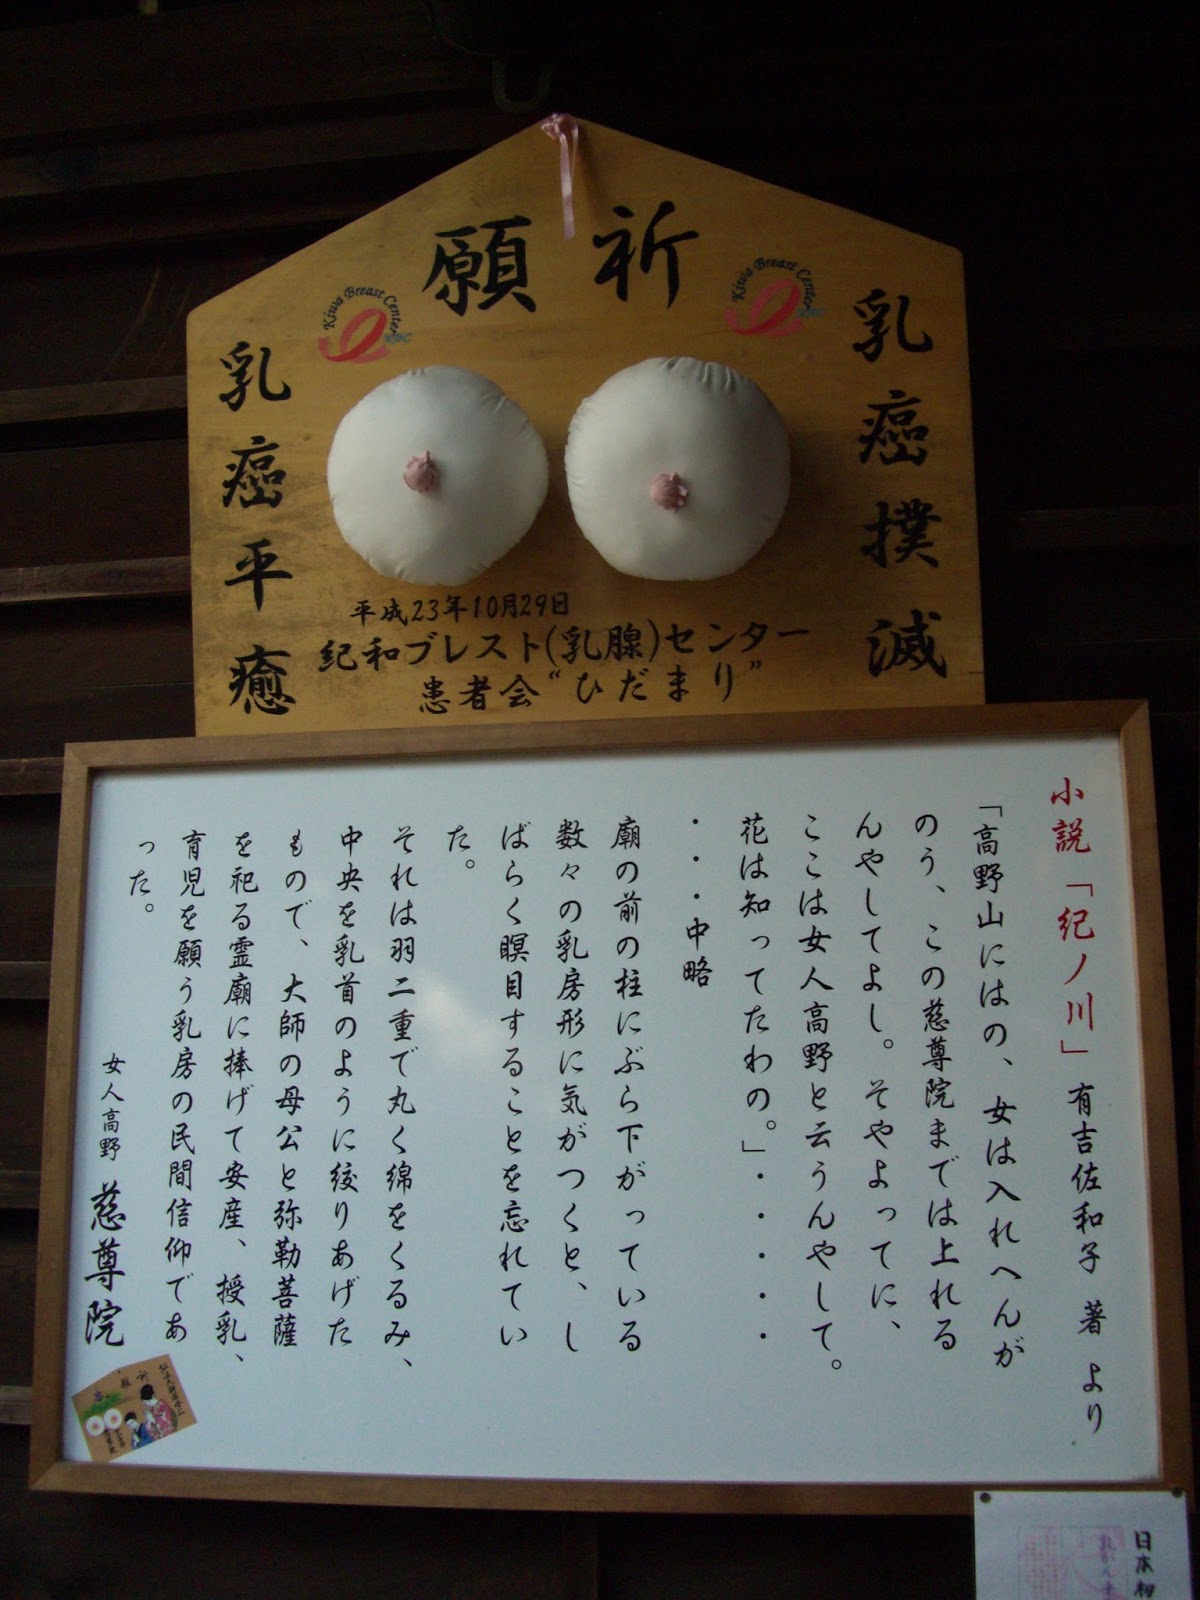 祈願
Kiwa Breast Center
KBC
Kiwa Breast Center
乳癌撲滅
乳癌平癒
平成23年10月29日
紀和ブレスト(乳腺)センター
患者会“ひだまり”
小説「紀ノ川」有吉佐和子 著 より
「高野山にはの、女は入れへんが
のう、この慈尊院までは上れる
んやしてよし。そやよってに、
ここは女人高野と云うんやして。
花は知ってたわの。」・・・・・
・・・中略
廟の前の柱にぶら下がっている
数々の乳房形に気がつくと、し
ばらく瞑目することを忘れてい
た。
それは羽二重で丸く綿をくるみ、
中央を乳首のように絞りあげた
もので、大師の母公と弥勒菩薩
を祀る霊廟に捧げて安産、授乳、
育児を願う乳房の民間信仰であ
った。
女人高野 慈尊院
日本初